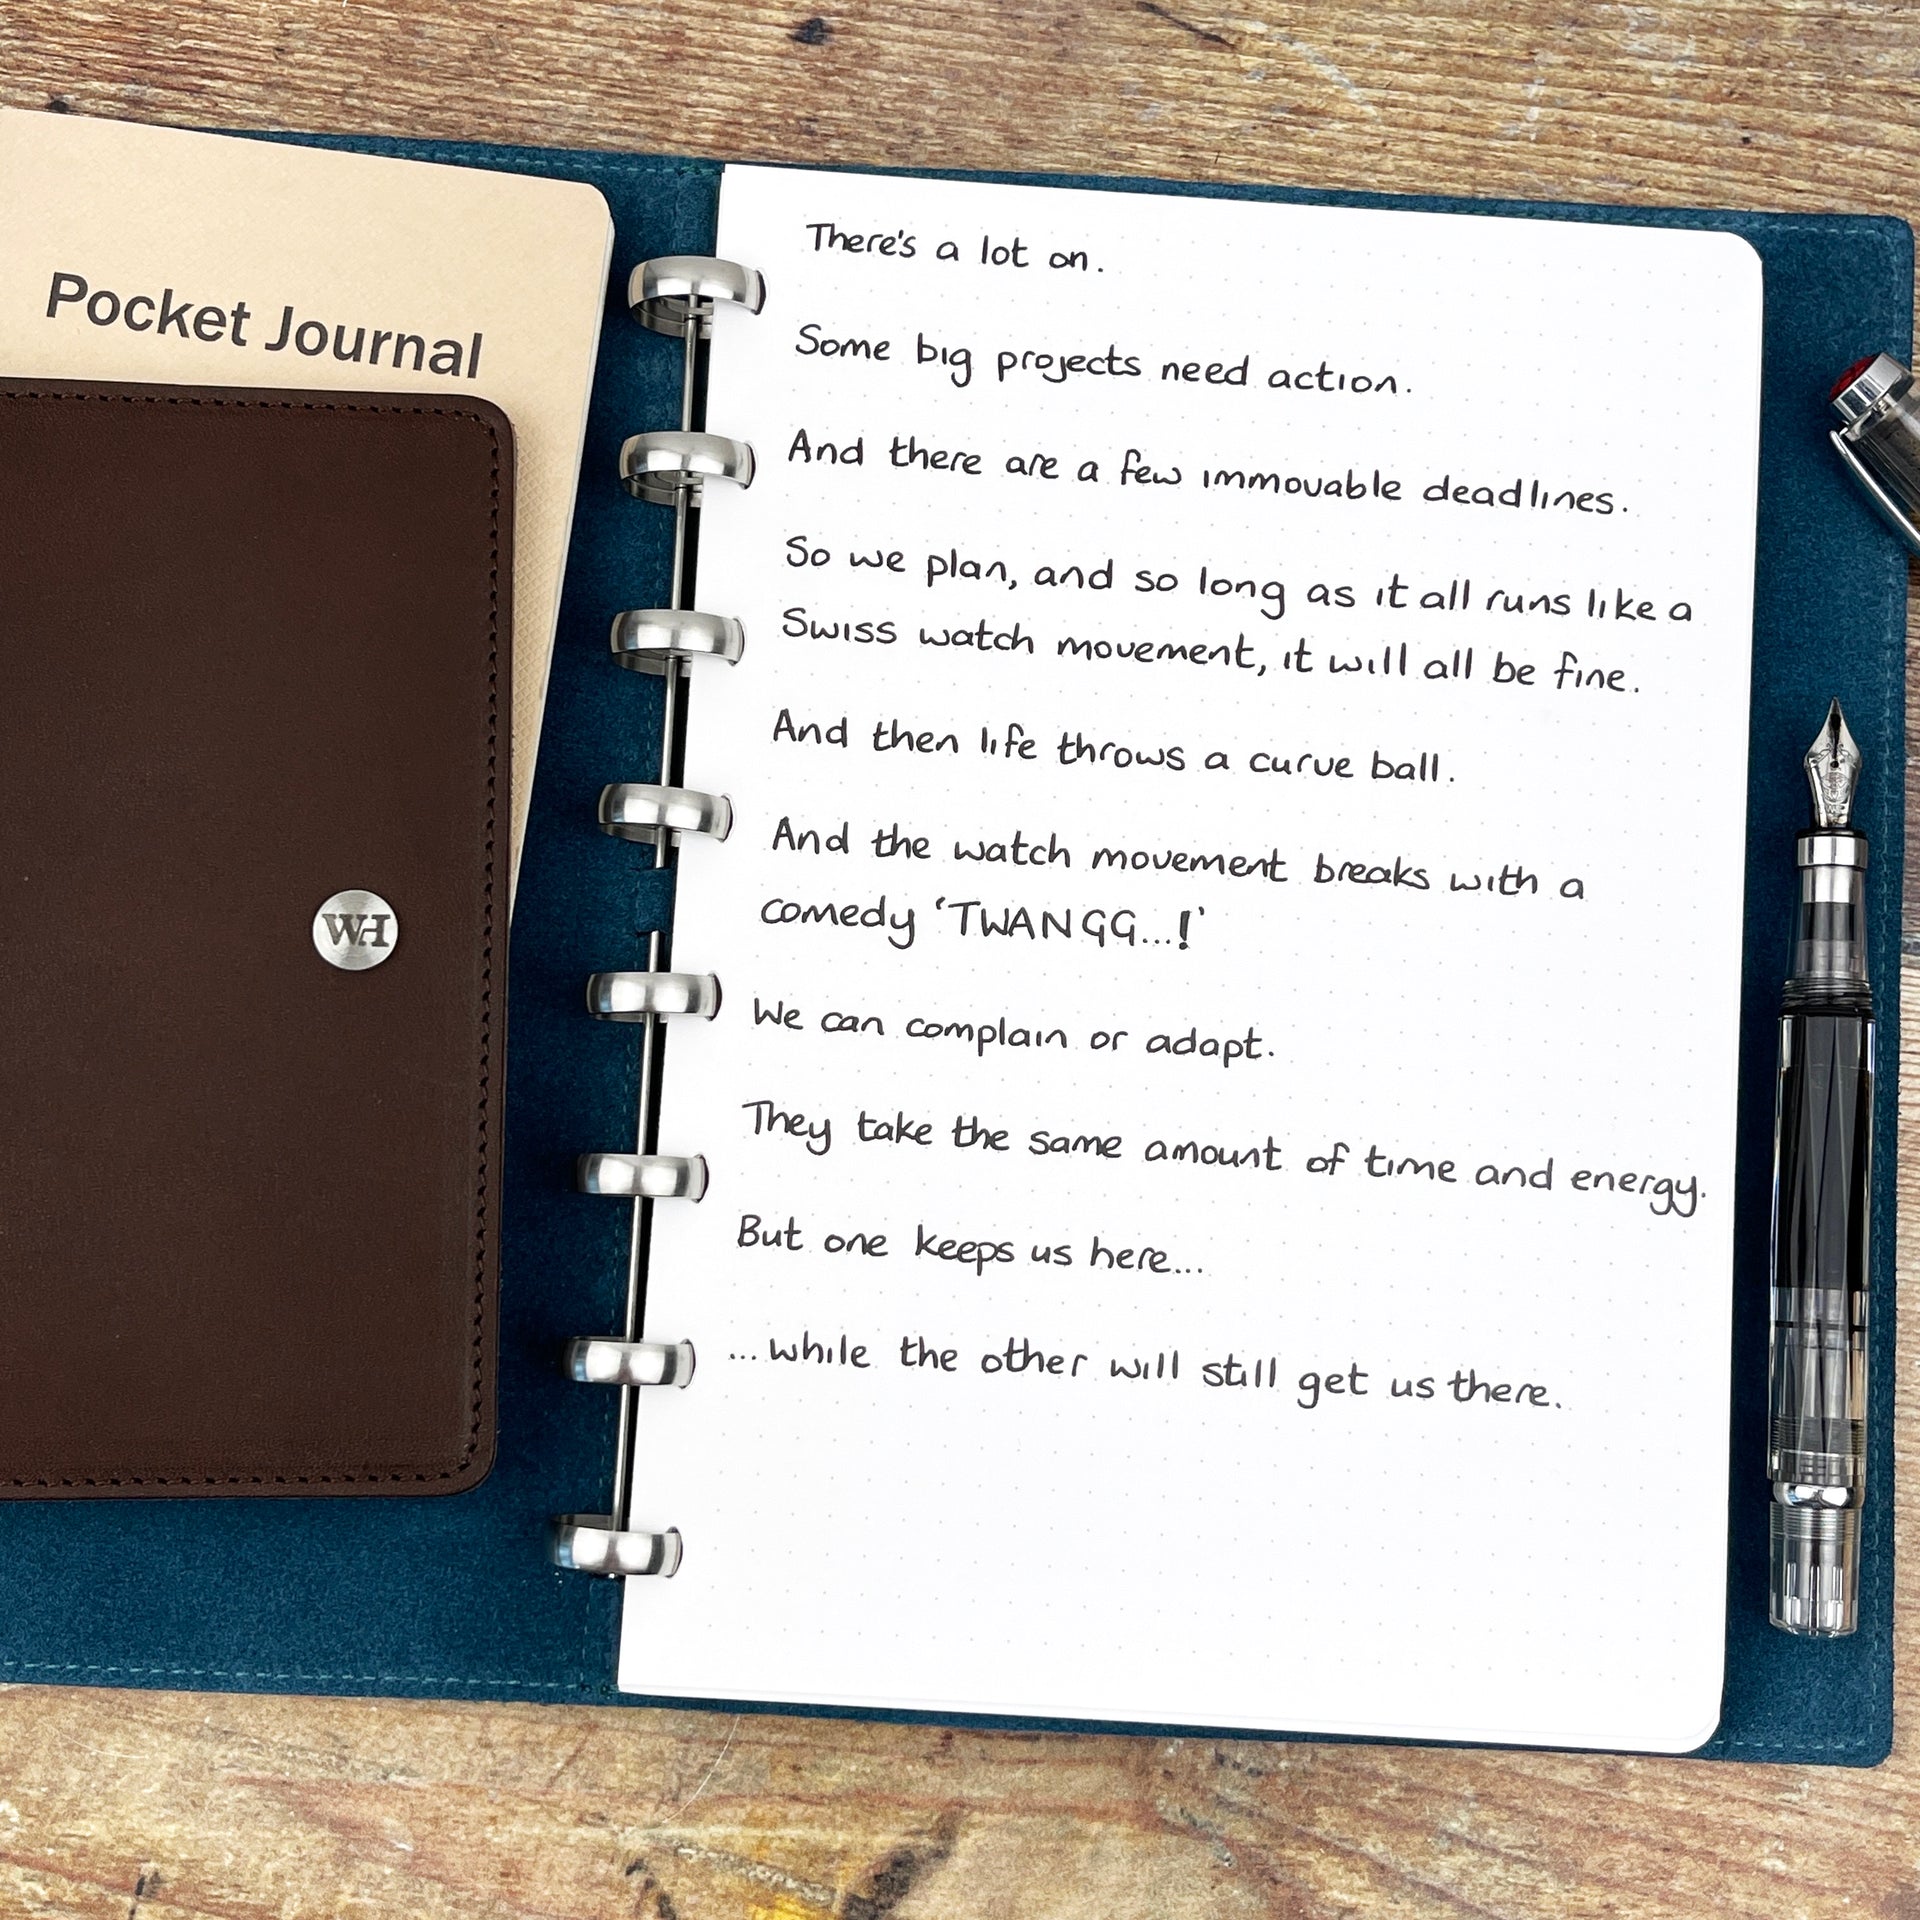 Pocket Journal
WH
There's a lot on.
Some big projects need action.
And there are a few immovable deadlines.
So we plan, and so long as it all runs like a
Swiss watch movement, it will all be fine.
And then life throws a curve ball.
And the watch movement breaks with a
comedy 'TWANGG...!'
We can complain or adapt.
They take the same amount of time and energy.
But one keeps us here...
...while the other will still get us there.